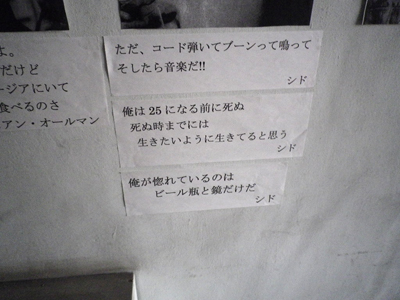 よ。
だけど
ージアにいて
食べるのさ
エアン・オールマン
ただ、コード弾いてブーンって鳴って
そしたら音楽だ!!
シド
俺は25になる前に死ぬ
死ぬ時までには
生きたいように生きてると思う
シド
俺が惚れているのは
ビール瓶と鏡だけだ
シド